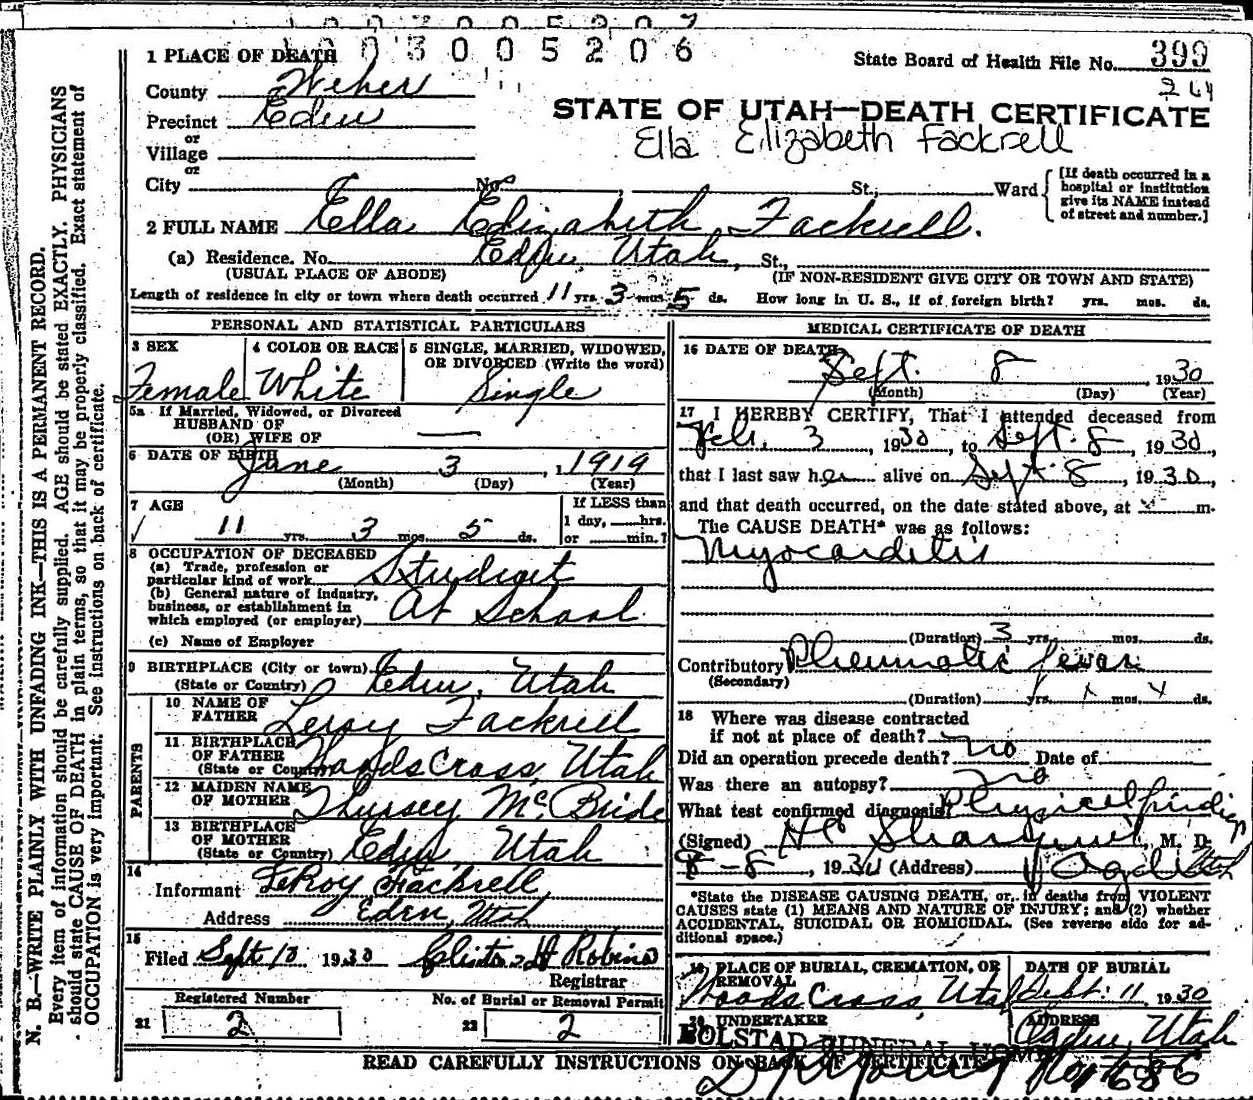 003005206
1 PLACE OF DEATH
State Board of Health File No. 399
264
County Weber
STATE OF UTAH—DEATH CERTIFICATE
Precinct Eden
Ella Elizabeth Fackrell
or
Village
or
City No. St.; Ward
[If death occurred in a hospital or institution give its NAME instead of street and number.]
2 FULL NAME Ella Elizabeth Fackrell.
(a) Residence. No. Eden Utah, St.,
(USUAL PLACE OF ABODE) (IF NON-RESIDENT GIVE CITY OR TOWN AND STATE)
Length of residence in city or town where death occurred 11 yrs. 3 mos. 5 ds. How long in U. S., if of foreign birth? yrs. mos. ds.
PERSONAL AND STATISTICAL PARTICULARS
3 SEX Female
4 COLOR OR RACE White
5 SINGLE, MARRIED, WIDOWED, OR DIVORCED (Write the word) Single
5a If Married, Widowed, or Divorced
HUSBAND OF
(OR) WIFE OF —
6 DATE OF BIRTH June 3, 1919
(Month) (Day) (Year)
7 AGE
11 yrs. 3 mos. 5 ds.
If LESS than
1 day, hrs.
or min.?
8 OCCUPATION OF DECEASED
(a) Trade, profession or
particular kind of work Student
(b) General nature of industry,
business, or establishment in
which employed (or employer) At School
(c) Name of Employer
9 BIRTHPLACE (City or town) Eden, Utah
(State or Country)
PARENTS
10 NAME OF FATHER Leroy Fackrell
11 BIRTHPLACE OF FATHER (State or Country) Woods Cross, Utah
12 MAIDEN NAME OF MOTHER Thursey McBride
13 BIRTHPLACE OF MOTHER (State or Country) Eden, Utah
14 Informant LeRoy Fackrell
Address Eden, Utah
15 Filed Sept 10 1930 Clinton H Robins
Registrar
Registered Number
21 2
No. of Burial or Removal Permit
22 2
MEDICAL CERTIFICATE OF DEATH
16 DATE OF DEATH
Sept. 8, 1930
(Month) (Day) (Year)
17 I HEREBY CERTIFY, That I attended deceased from
Feb. 3, 1930, to Sept. 8, 1930,
that I last saw her alive on Sept. 8, 1930,
and that death occurred, on the date stated above, at m.
The CAUSE DEATH* was as follows:
Myocarditis
(Duration) 3 yrs. mos. ds.
Contributory Rheumatic fever
(Secondary)
(Duration) yrs. mos. ds.
18 Where was disease contracted
if not at place of death? no
Did an operation precede death? Date of
Was there an autopsy? no
What test confirmed diagnosis? Physical findings
(Signed) M. D.
8-8, 1930 (Address) Ogden Utah
*State the DISEASE CAUSING DEATH, or, in deaths from VIOLENT
CAUSES state (1) MEANS AND NATURE OF INJURY; and (2) whether
ACCIDENTAL, SUICIDAL OR HOMICIDAL. (See reverse side for ad-
ditional space.)
19 PLACE OF BURIAL, CREMATION, OR REMOVAL Woods Cross, Utah
DATE OF BURIAL Sept. 11 1930
20 UNDERTAKER
BOLSTAD FUNERAL HOME
ADDRESS Ogden, Utah
READ CAREFULLY INSTRUCTIONS ON BACK OF CERTIFICATE
N. B.—WRITE PLAINLY WITH UNFADING INK—THIS IS A PERMANENT RECORD.
Every item of information should be carefully supplied. AGE should be stated EXACTLY. PHYSICIANS
should state CAUSE OF DEATH in plain terms, so that it may be properly classified. Exact statement of
OCCUPATION is very important. See instructions on back of certificate.